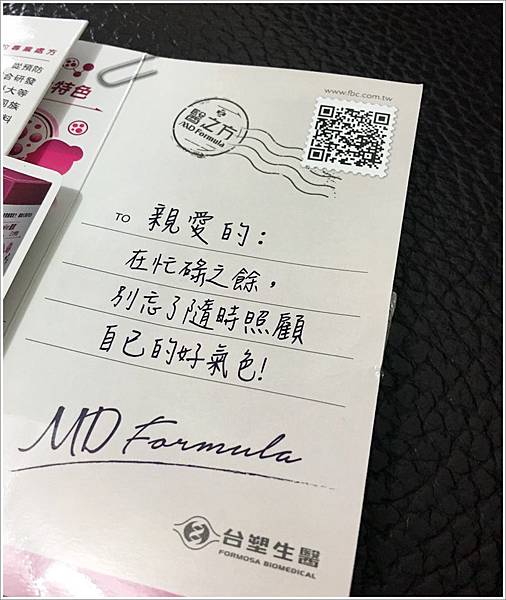 專業處方
從預防
合研發
大等
特色
料
www.fbc.com.tw
醫之方
MD Formula
TO 親愛的：
在忙碌之餘，
別忘了隨時照顧
自己的好氣色！
MD Formula
台塑生醫
FORMOSA BIOMEDICAL